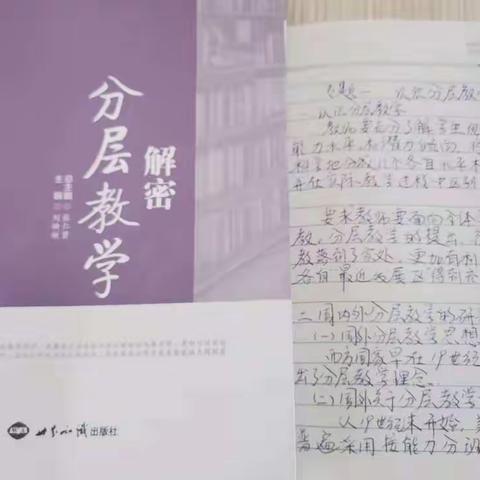 解密
分层教学
总主编
主编
世界知识出版社
专题一 认识分层教
一、认识分层教学
教师要充分了解学生现
能力水平和潜力倾向,
科学地分成几个各自水平相
并在实际教学过程中区别
要求教师要面向全体
教,分层教学的提出,
教落到了实处,更加有利
各自"最近发展区"得到充
二、国内外分层教学的研
(一)国外分层教学思想
西方国家早在19世纪
出了分层教学理念.
(二)国外关于分层教学
从19世纪末开始,美
普遍采用按能力分